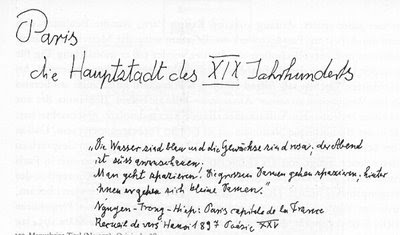 Paris
die Hauptstadt des XIX Jahrhunderts
„Die Wasser sind blau und die Gewächse sind rosa; der Abend
ist süss anzuschauen;
Man geht spazieren. Die grossen Damen gehen spazieren; hinter
ihnen ergehen sich kleine Damen."
Nguyen-Trong-Hiep: Paris capitale de la France
Recueil de vers Hanoi 1897 Poésie XXV